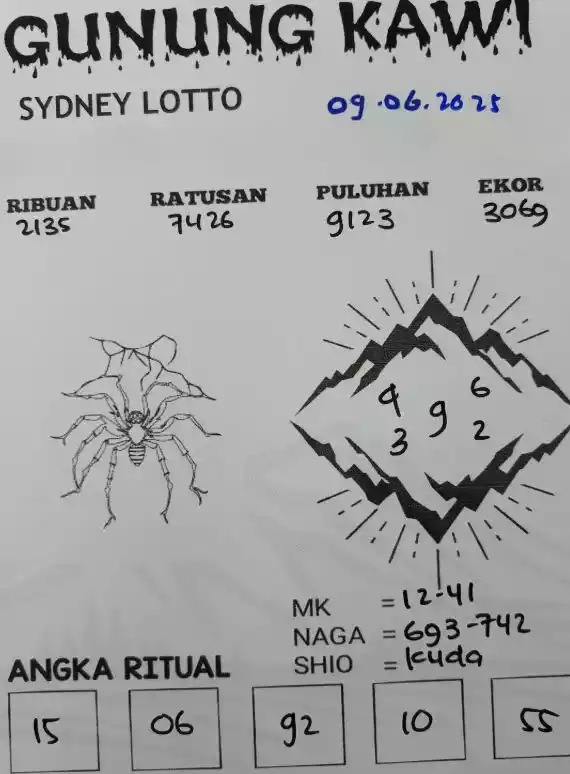 GUNUNG KAWI
SYDNEY LOTTO 09.06.2025
RIBUAN RATUSAN PULUHAN EKOR
2135 7426 9123 3069
4 6
9
3 2
MK = 12-41
NAGA = 693-742
SHIO = kuda
ANGKA RITUAL
15 06 92 10 55